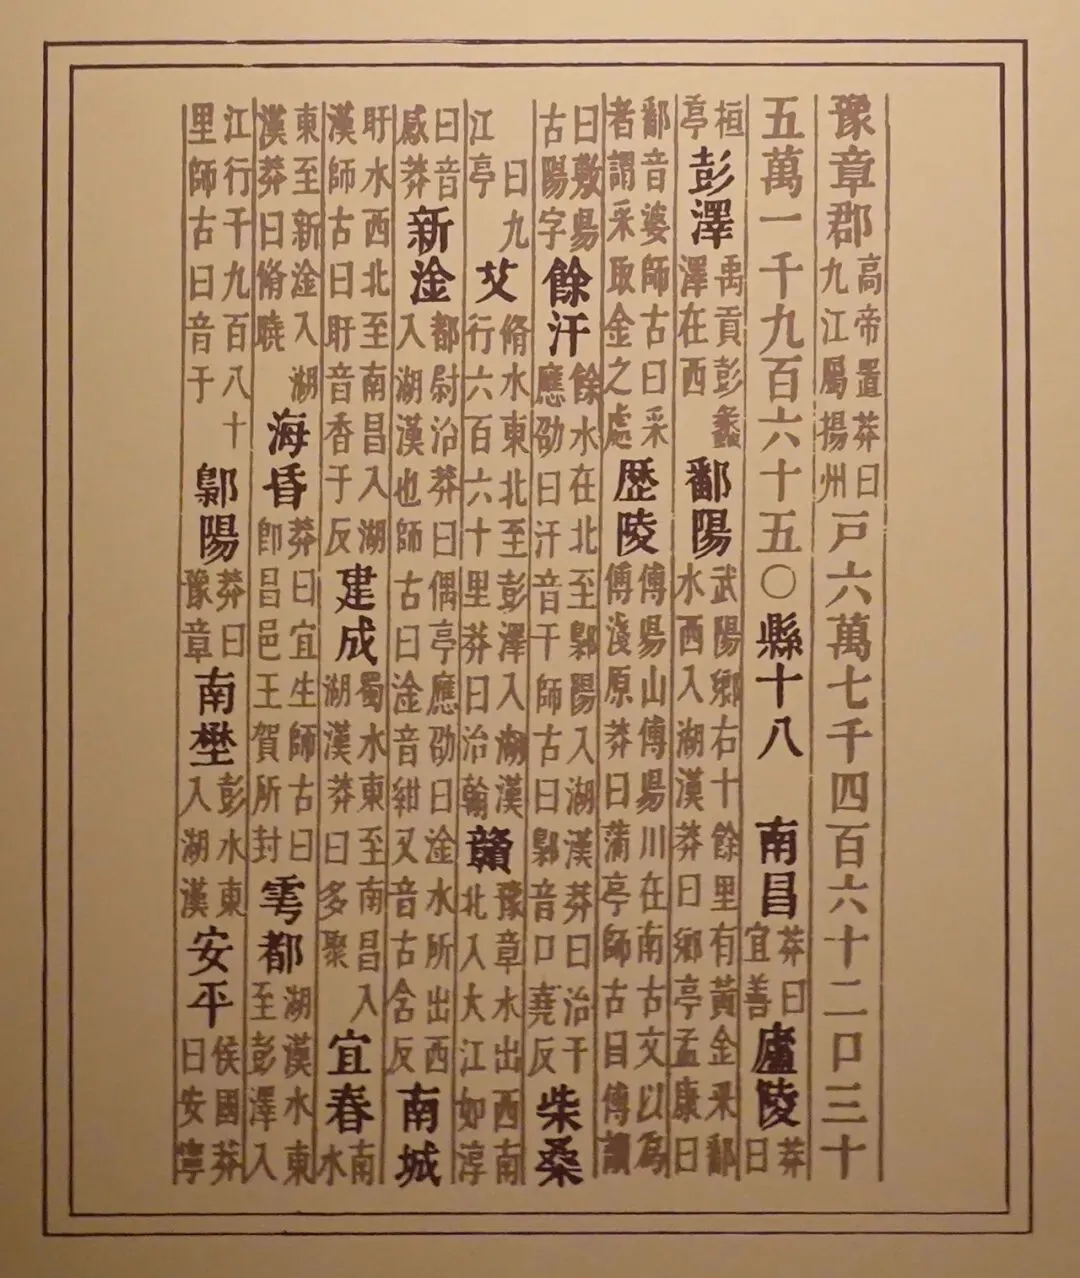 豫章郡高帝置莽曰九江屬揚州戸六萬七千四百六十二口三十
五萬一千九百六十五〇縣十八　南昌莽曰宜善廬陵莽曰
桓亭彭澤禹貢彭蠡澤在西鄱陽武陽鄉右十餘里有黃金采鄱水西入湖漢莽曰鄉亭孟康曰
鄱音婆師古曰采者謂采取金之處歷陵傅昜山傅昜川在南古文以爲傅淺原莽曰蒲亭師古曰傅讀
曰敷昜古陽字餘汗餘水在北至鄡陽入湖漢莽曰治干應劭曰汗音干師古曰鄡音口堯反柴桑
曰九江亭艾脩水東北至彭澤入湖漢行六百六十里莽曰治翰贛豫章水出西南北入大江如淳
曰音感莽新淦都尉治莽曰偶亭應劭曰淦水所出西入湖漢也師古曰淦音紺又音古含反南城
盱水西北至南昌入湖漢師古曰盱音香于反建成蜀水東至南昌入湖漢莽曰多聚宜春南水
東至新淦入湖漢莽曰脩曉海昏莽曰宜生師古曰即昌邑王賀所封雩都湖漢水東至彭澤入
江行千九百八十里師古曰音于鄡陽莽曰豫章南壄彭水東入湖漢安平侯國莽曰安寧